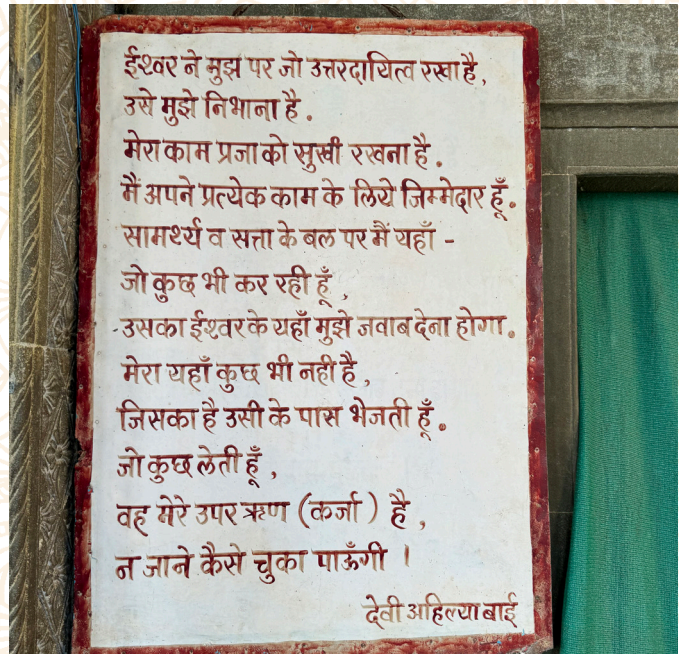 ईश्वर ने मुझ पर जो उत्तरदायित्व रखा है,
उसे मुझे निभाना है.
मेरा काम प्रजा को सुखी रखना है.
मैं अपने प्रत्येक काम के लिये जिम्मेदार हूँ.
सामर्थ्य व सत्ता के बल पर मैं यहाँ -
जो कुछ भी कर रही हूँ,
उसका ईश्वर के यहाँ मुझे जवाब देना होगा.
मेरा यहाँ कुछ भी नही है,
जिसका है उसी के पास भेजती हूँ.
जो कुछ लेती हूँ,
वह मेरे उपर ऋण (कर्जा) है,
न जाने कैसे चुका पाऊँगी ।
देवी अहिल्या बाई